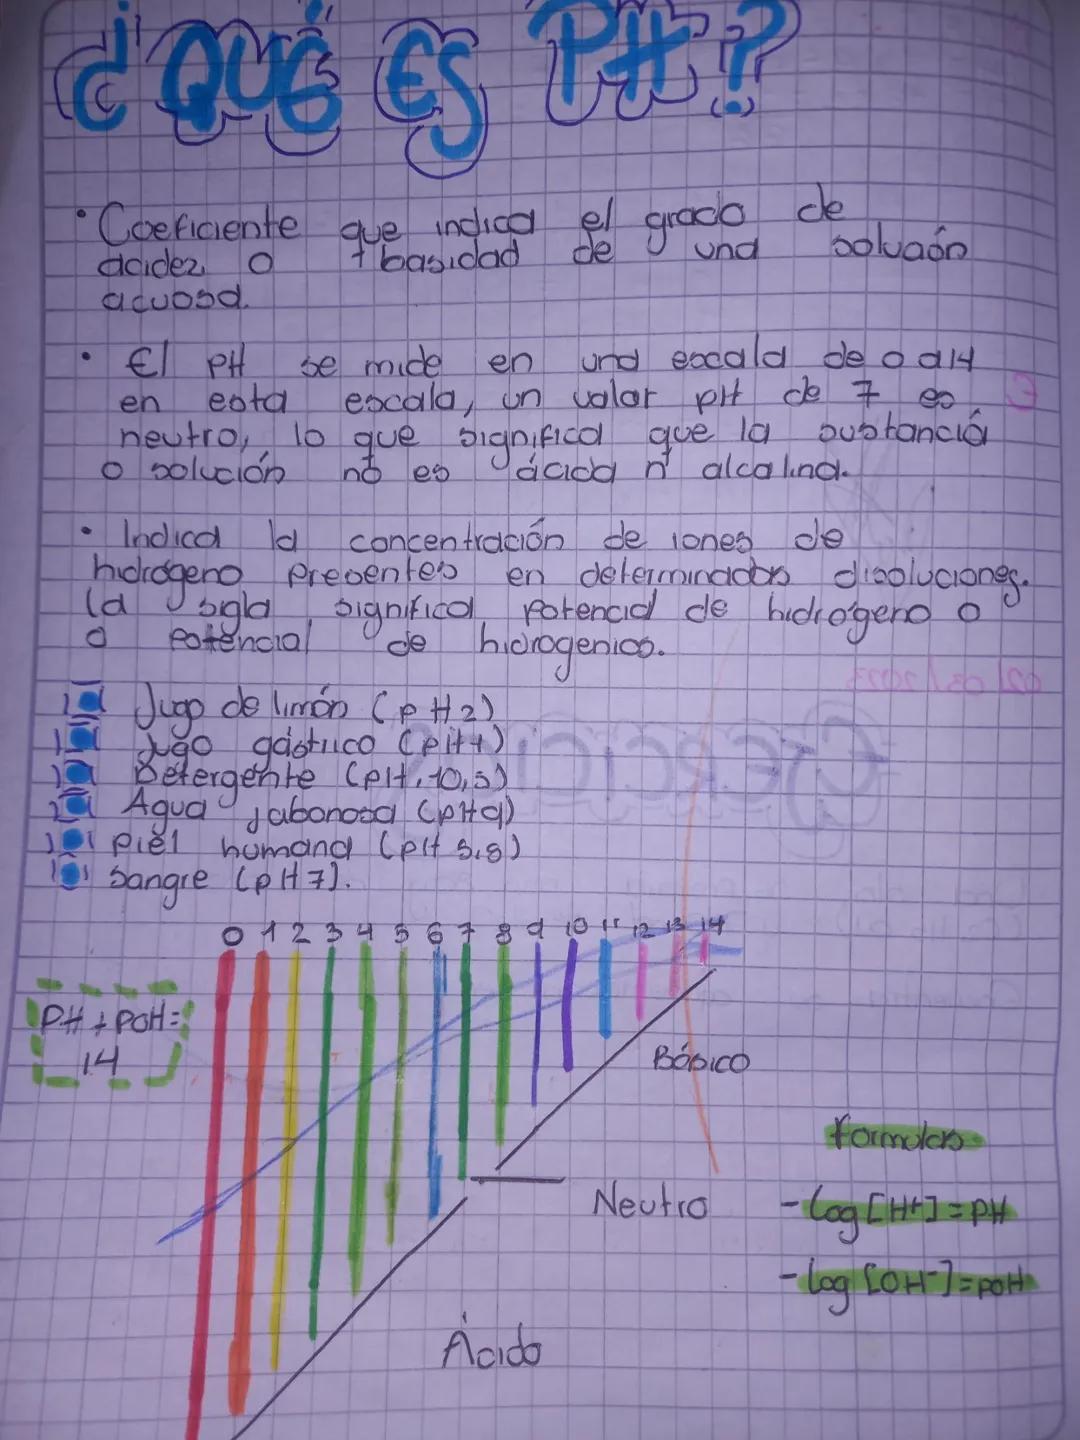 ¿QUÉ ES PH?
• Coeficiente que indica el grado de
acidez o basidad de una solución
acuosa.
• El pH se mide en una escala de 0 a 14
en esta escala, un valor pH de 7 es
neutro, lo que significa que la sustancia
o solución no es ácida ni alcalina.
• Indica la concentración de iones de
hidrógeno presentes en determinados disoluciones.
la sigla significa potencia de hidrógeno o
o potencial de hidrogenios.
Jugo de limón (pH2)
Jugo gástrico (pH1)
Detergente (pH.10,5)
Agua jabonosa (pH9)
Piel humana (pH 5,8)
Sangre (pH7).
0 1 2 3 4 5 6 7 8 9 10 11 12 13 14
PH + POH =
14
Básico
Formulas
Neutro
-log [H+] = PH
-log [OH-] = pOH
Ácido